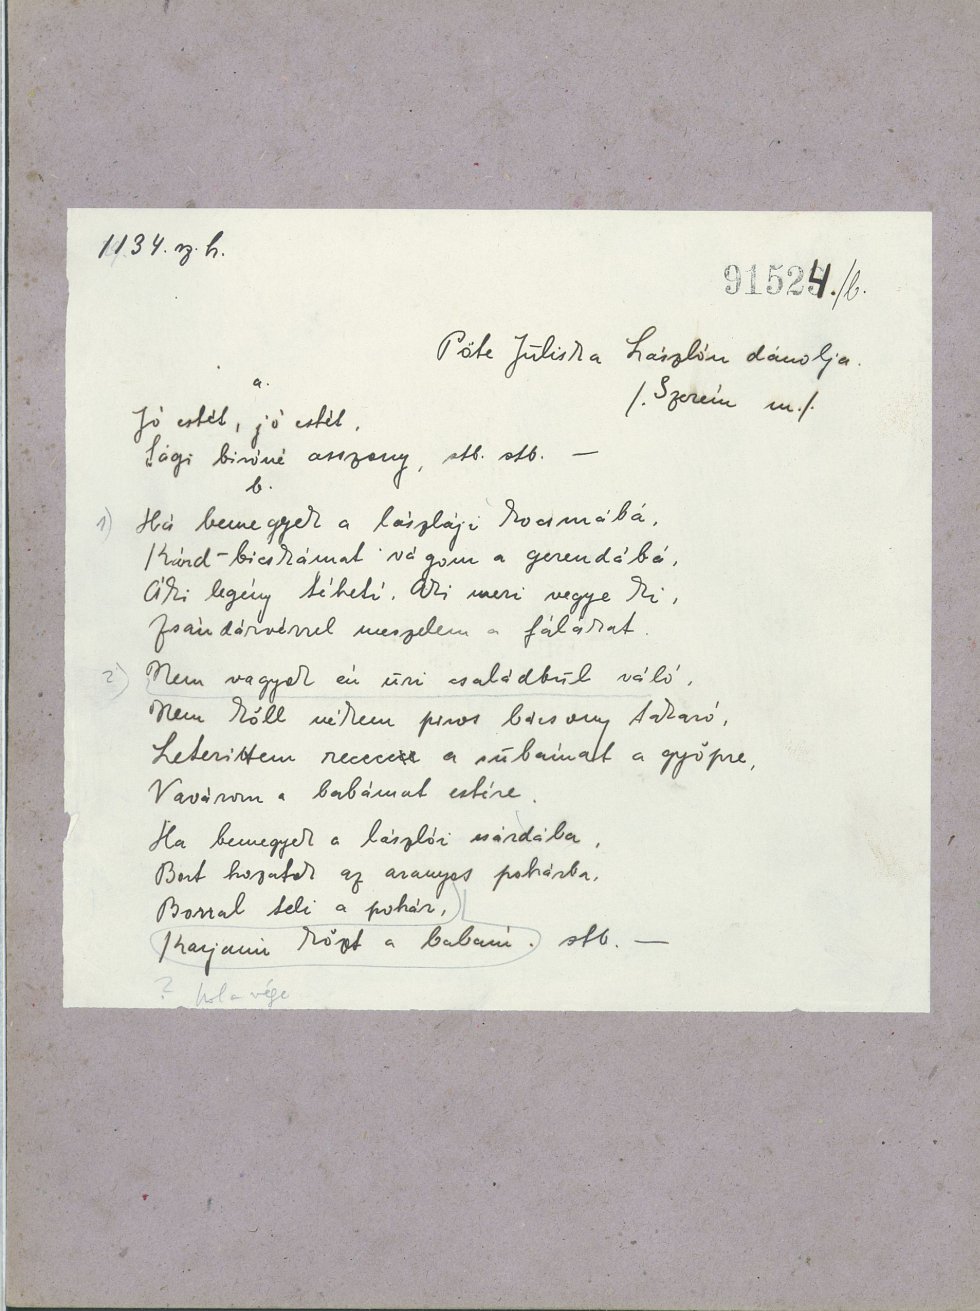 1134. sz. h.
91524./b.
Pőte Juliska Lászlón dánolja.
/. Szerém m./.
a.
Jó estét, jó estét,
Sági biróné asszony, stb. stb. —
b.
1) Há bemegyek a lászlóji kocsmábá,
Kürd-bicskámat vágom a gerendábá,
Áki legény téheti, Áki meri vegye ki,
Zsándárvérrel meszelem a fálákat.
2) Nem vagyok én úri családbúl váló,
Nem köll nékem piros bácsony takaró,
Leterittem a subámat a gyöpre,
Vavárom a babámat estére.
Ha bemegyek a lászlói csárdába,
Bort hozatok az aranyos pohárba,
Borral teli a pohár,
Karjaim közt a babám. stb. —
? hol a vége